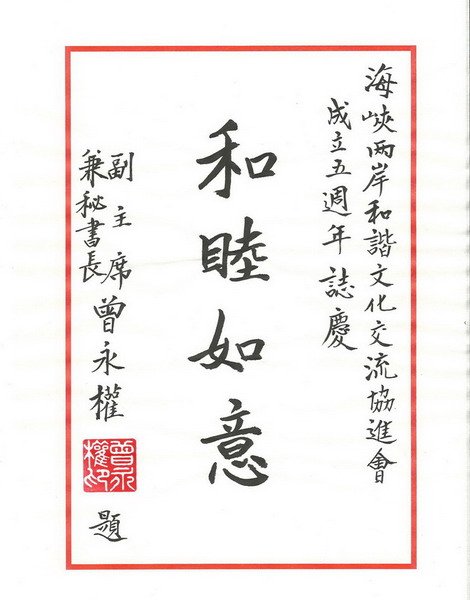 海峽兩岸和諧文化交流協進會
成立五週年誌慶
和睦如意
副主席
兼秘書長
曾永權
曾永權印
題